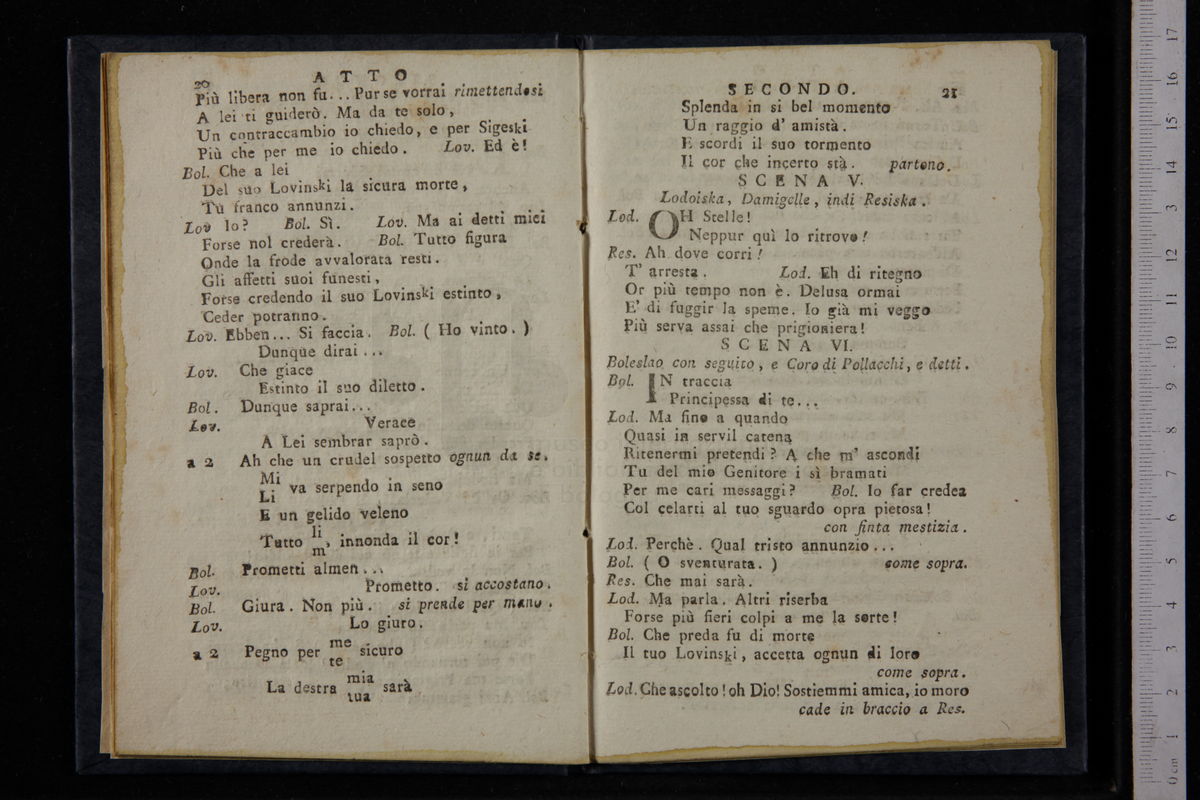 20
ATTO
Più libera non fu... Pur se vorrai rimettendosi
A lei ti guiderò. Ma da te solo,
Un contraccambio io chiedo, e per Sigeski
Più che per me io chiedo. Lov. Ed è!
Bol. Che a lei
Del suo Lovinski la sicura morte,
Tu franco annunzi.
Lov Io? Bol. Sì. Lov. Ma ai detti miei
Forse nol crederà. Bol. Tutto figura
Onde la frode avvalorata resti.
Gli affetti suoi funesti,
Forse credendo il suo Lovinski estinto,
Ceder potranno.
Lov. Ebben... Si faccia. Bol. ( Ho vinto. )
Dunque dirai...
Lov. Che giace
Estinto il suo diletto.
Bol. Dunque saprai...
Lov. Verace
A Lei sembrar saprò.
a 2 Ah che un crudel sospetto ognun da se.
Mi
Li va serpendo in seno
E un gelido veleno
Tutto li
m, innonda il cor!
Bol. Prometti almen...
Lov. Prometto. si accostano.
Bol. Giura. Non più. si prende per mano.
Lov. Lo giuro.
a 2 Pegno per me
te sicuro
La destra mia
tua sarà
SECONDO.
21
Splenda in si bel momento
Un raggio d' amistà.
E scordi il suo tormento
Il cor che incerto stà. partono.
SCENA V.
Lodoiska, Damigelle, indi Resiska.
Lod. OH Stelle!
Neppur quì lo ritrovo!
Res. Ah dove corri!
T' arresta. Lod. Eh di ritegno
Or più tempo non è. Delusa ormai
E' di fuggir la speme. Io già mi veggo
Più serva assai che prigioniera!
SCENA VI.
Boleslao con seguito, e Coro di Pollacchi, e detti.
Bol. IN traccia
Principessa di te...
Lod. Ma fino a quando
Quasi in servil catena
Ritenermi pretendi? A che m' ascondi
Tu del mio Genitore i sì bramati
Per me cari messaggi? Bol. Io far credea
Col celarti al tuo sguardo opra pietosa!
con finta mestizia.
Lod. Perchè. Qual tristo annunzio...
Bol. ( O sventurata. ) come sopra.
Res. Che mai sarà.
Lod. Ma parla. Altri riserba
Forse più fieri colpi a me la sorte!
Bol. Che preda fu di morte
Il tuo Lovinski, accetta ognun di loro
come sopra.
Lod. Che ascolto! oh Dio! Sostiemmi amica, io moro
cade in braccio a Res.
0 cm 1 2 3 4 5 6 7 8 9 10 11 12 13 14 15 16 17